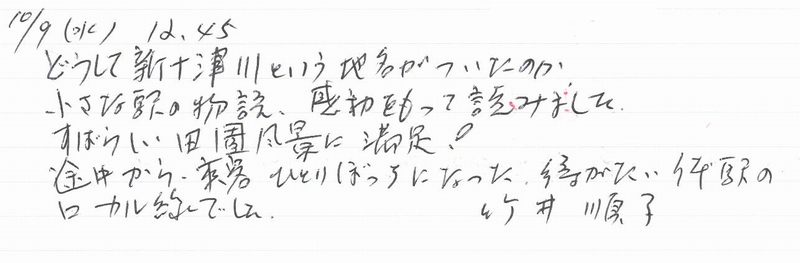 10/9(水) 12.45
どうして新十津川という地名がついたのか
小さな駅の物語、感動をもって読みました.
すばらしい田園風景に満足!
途中から、乗客ひとりぼっちになった. 得がたい 駅の
ローカル線でした. 竹井順子